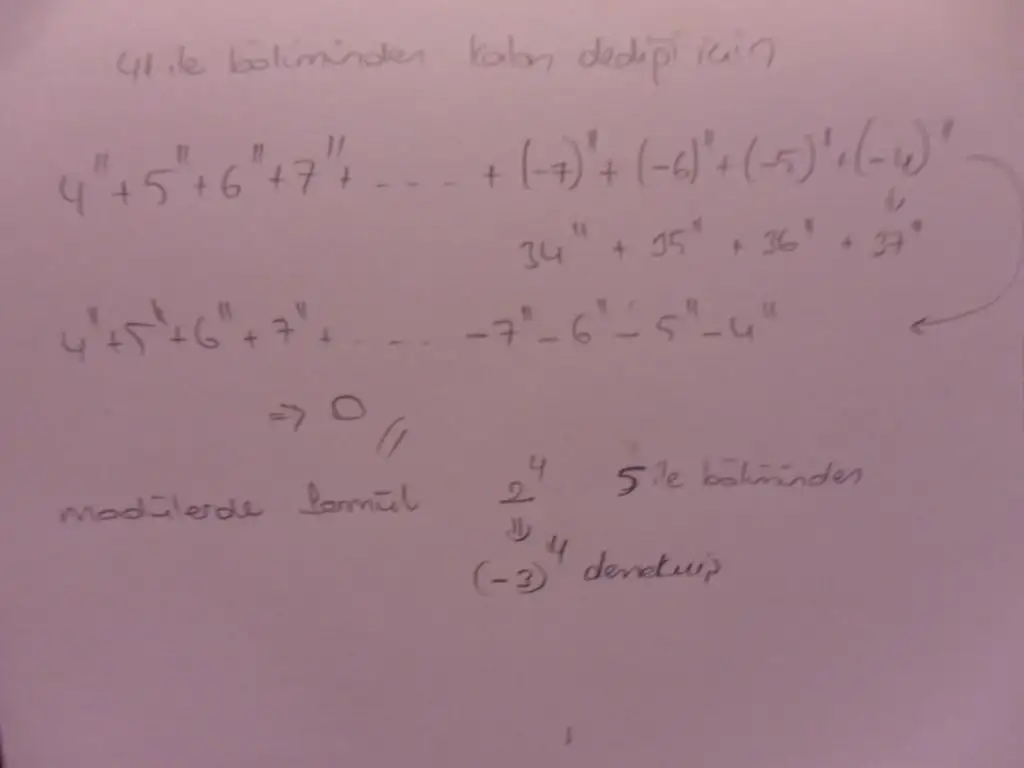 41 ile böliminden kalan dediği için
4¹¹ + 5¹¹ + 6¹¹ + 7¹¹ + .... + (-7)¹¹ + (-6)¹¹ + (-5)¹¹ + (-4)¹¹
34¹¹ + 35¹¹ + 36¹¹ + 37¹¹
4¹¹ + 5¹¹ + 6¹¹ + 7¹¹ + .... -7¹¹ - 6¹¹ - 5¹¹ - 4¹¹
=> 0 //
modülerde formül 2⁴ 5 ile böliminden
(-3)⁴ denktir